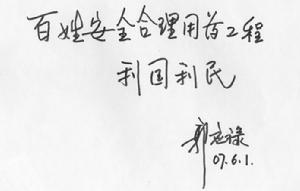 百姓安全合理用药工程
利国利民
郭应禄
07.6.1.